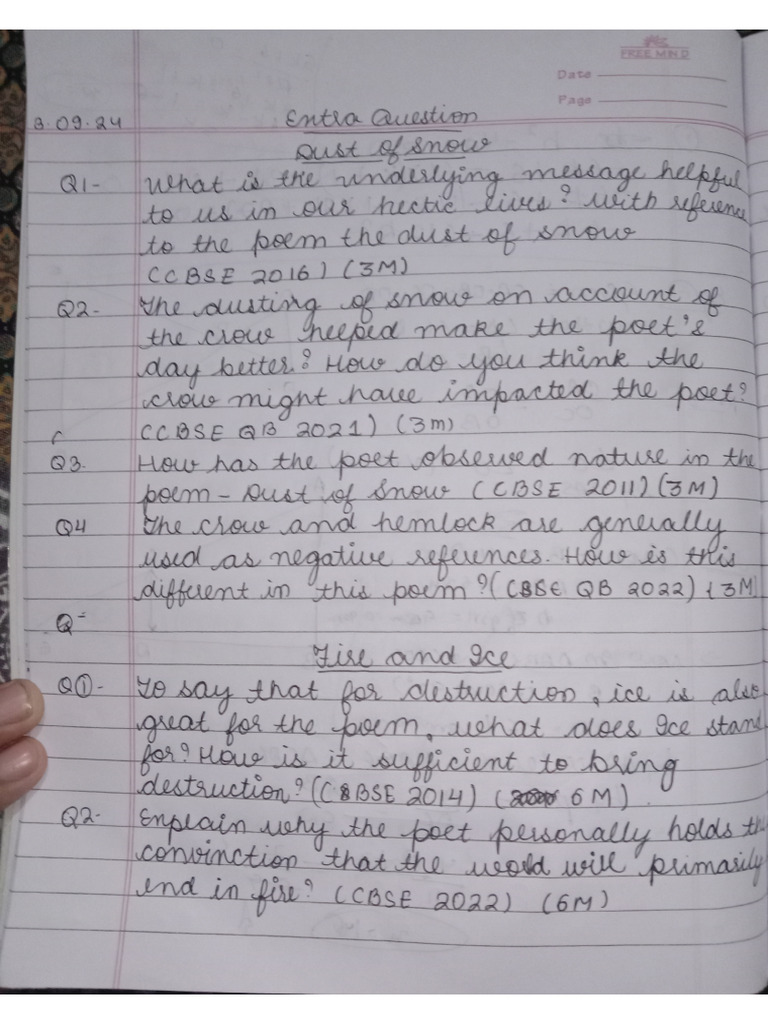 FREE MIND
Date
Page
3.09.24 Extra Question
Dust of Snow
Q1- What is the underlying message helpful
to us in our hectic lives? With reference
to the poem the dust of snow
(CBSE 2016) (3M)
Q2- The dusting of snow on account of
the crow helped make the poet's
day better? How do you think the
crow might have impacted the poet?
(CBSE QB 2021) (3m)
Q3. How has the poet observed nature in the
poem - Dust of Snow (CBSE 2011) (3M)
Q4 The crow and hemlock are generally
used as negative references. How is this
different in this poem? (CBSE QB 2022) (3M)
Q-
Fire and Ice
Q①- To say that for destruction, ice is also
great for the poem, what does Ice stand
for? How is it sufficient to bring
destruction? (CBSE 2014) ( 6M)
Q2- Explain why the poet personally holds th
convinction that the world will primarily
end in fire? (CBSE 2022) (6M)